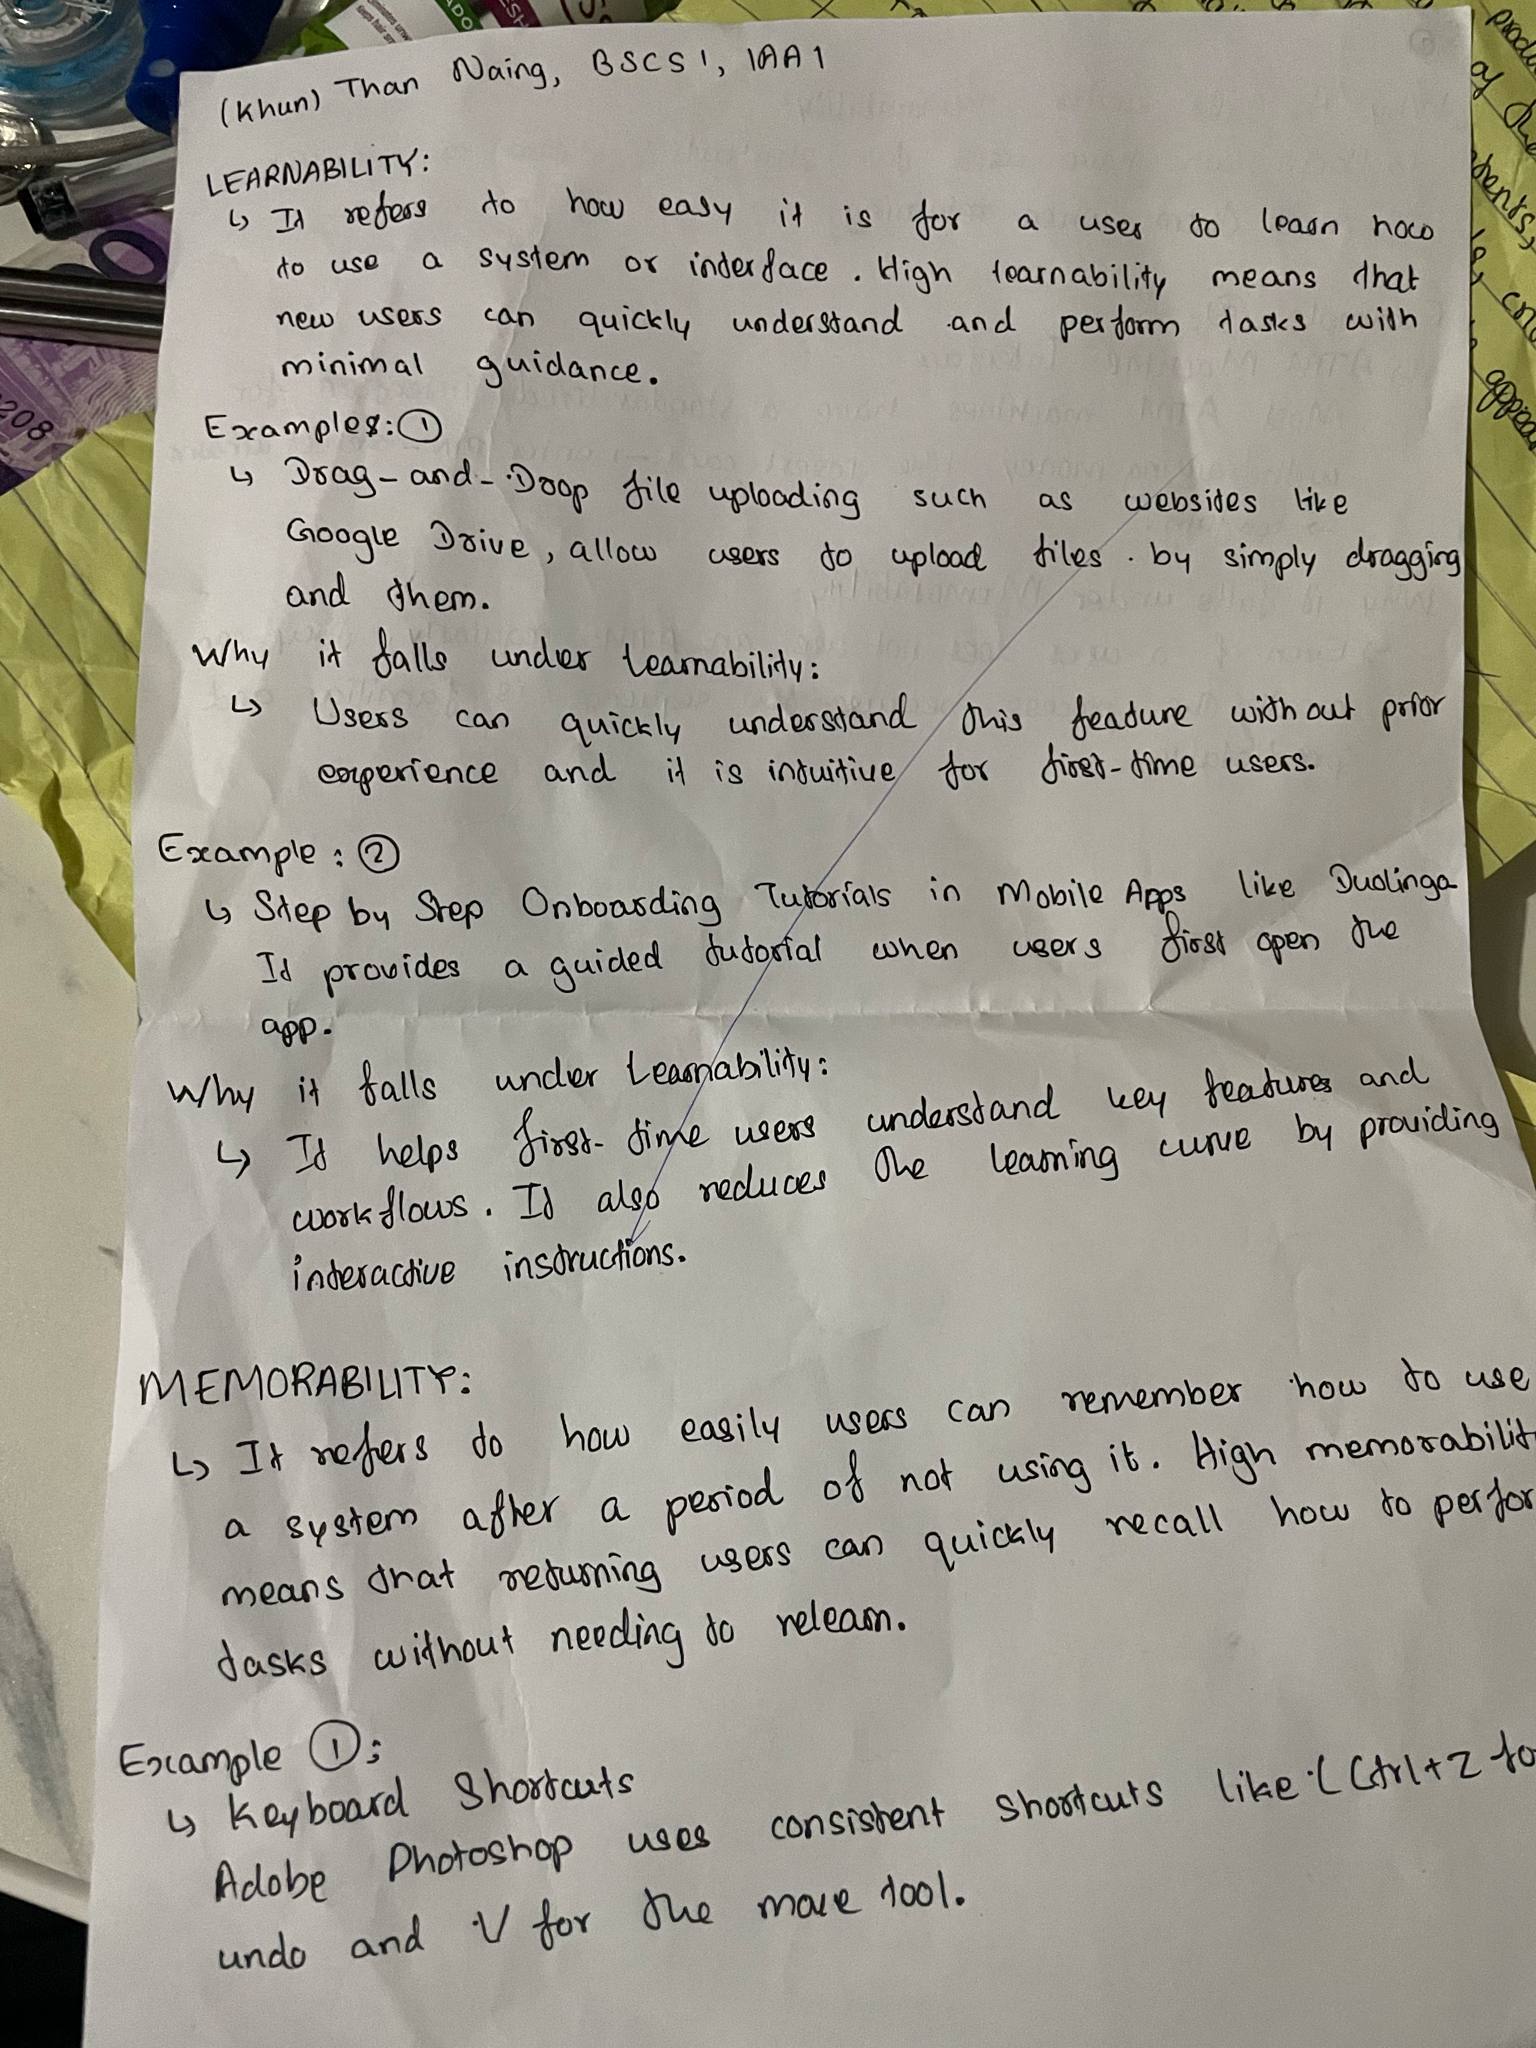 (Khun) Than Naing, BSCS1, IAA1
LEARNABILITY:
↳ It refers to how easy it is for a user to learn how
to use a system or interface. High learnability means that
new users can quickly understand and perform tasks with
minimal guidance.
Examples: ①
↳ Drag-and-Drop file uploading such as websites like
Google Drive, allow users to upload files. by simply dragging
and them.
Why it falls under Learnability:
↳ Users can quickly understand this feature without prior
experience and it is intuitive for first-time users.
Example: ②
↳ Step by Step Onboarding Tutorials in Mobile Apps like Duolinga
It provides a guided tutorial when users first open the
app.
Why it falls under Learnability:
↳ It helps first-time users understand key features and
workflows. It also reduces the learning curve by providing
interactive instructions.
MEMORABILITY:
↳ It refers to how easily users can remember how to use
a system after a period of not using it. High memorabilit
means that returning users can quickly recall how to perfor
tasks without needing to relearn.
Example ①:
↳ Keyboard Shortcuts
Adobe Photoshop uses consistent shortcuts like (Ctrl+Z fo
undo and V for the move tool.
208
of the
appear